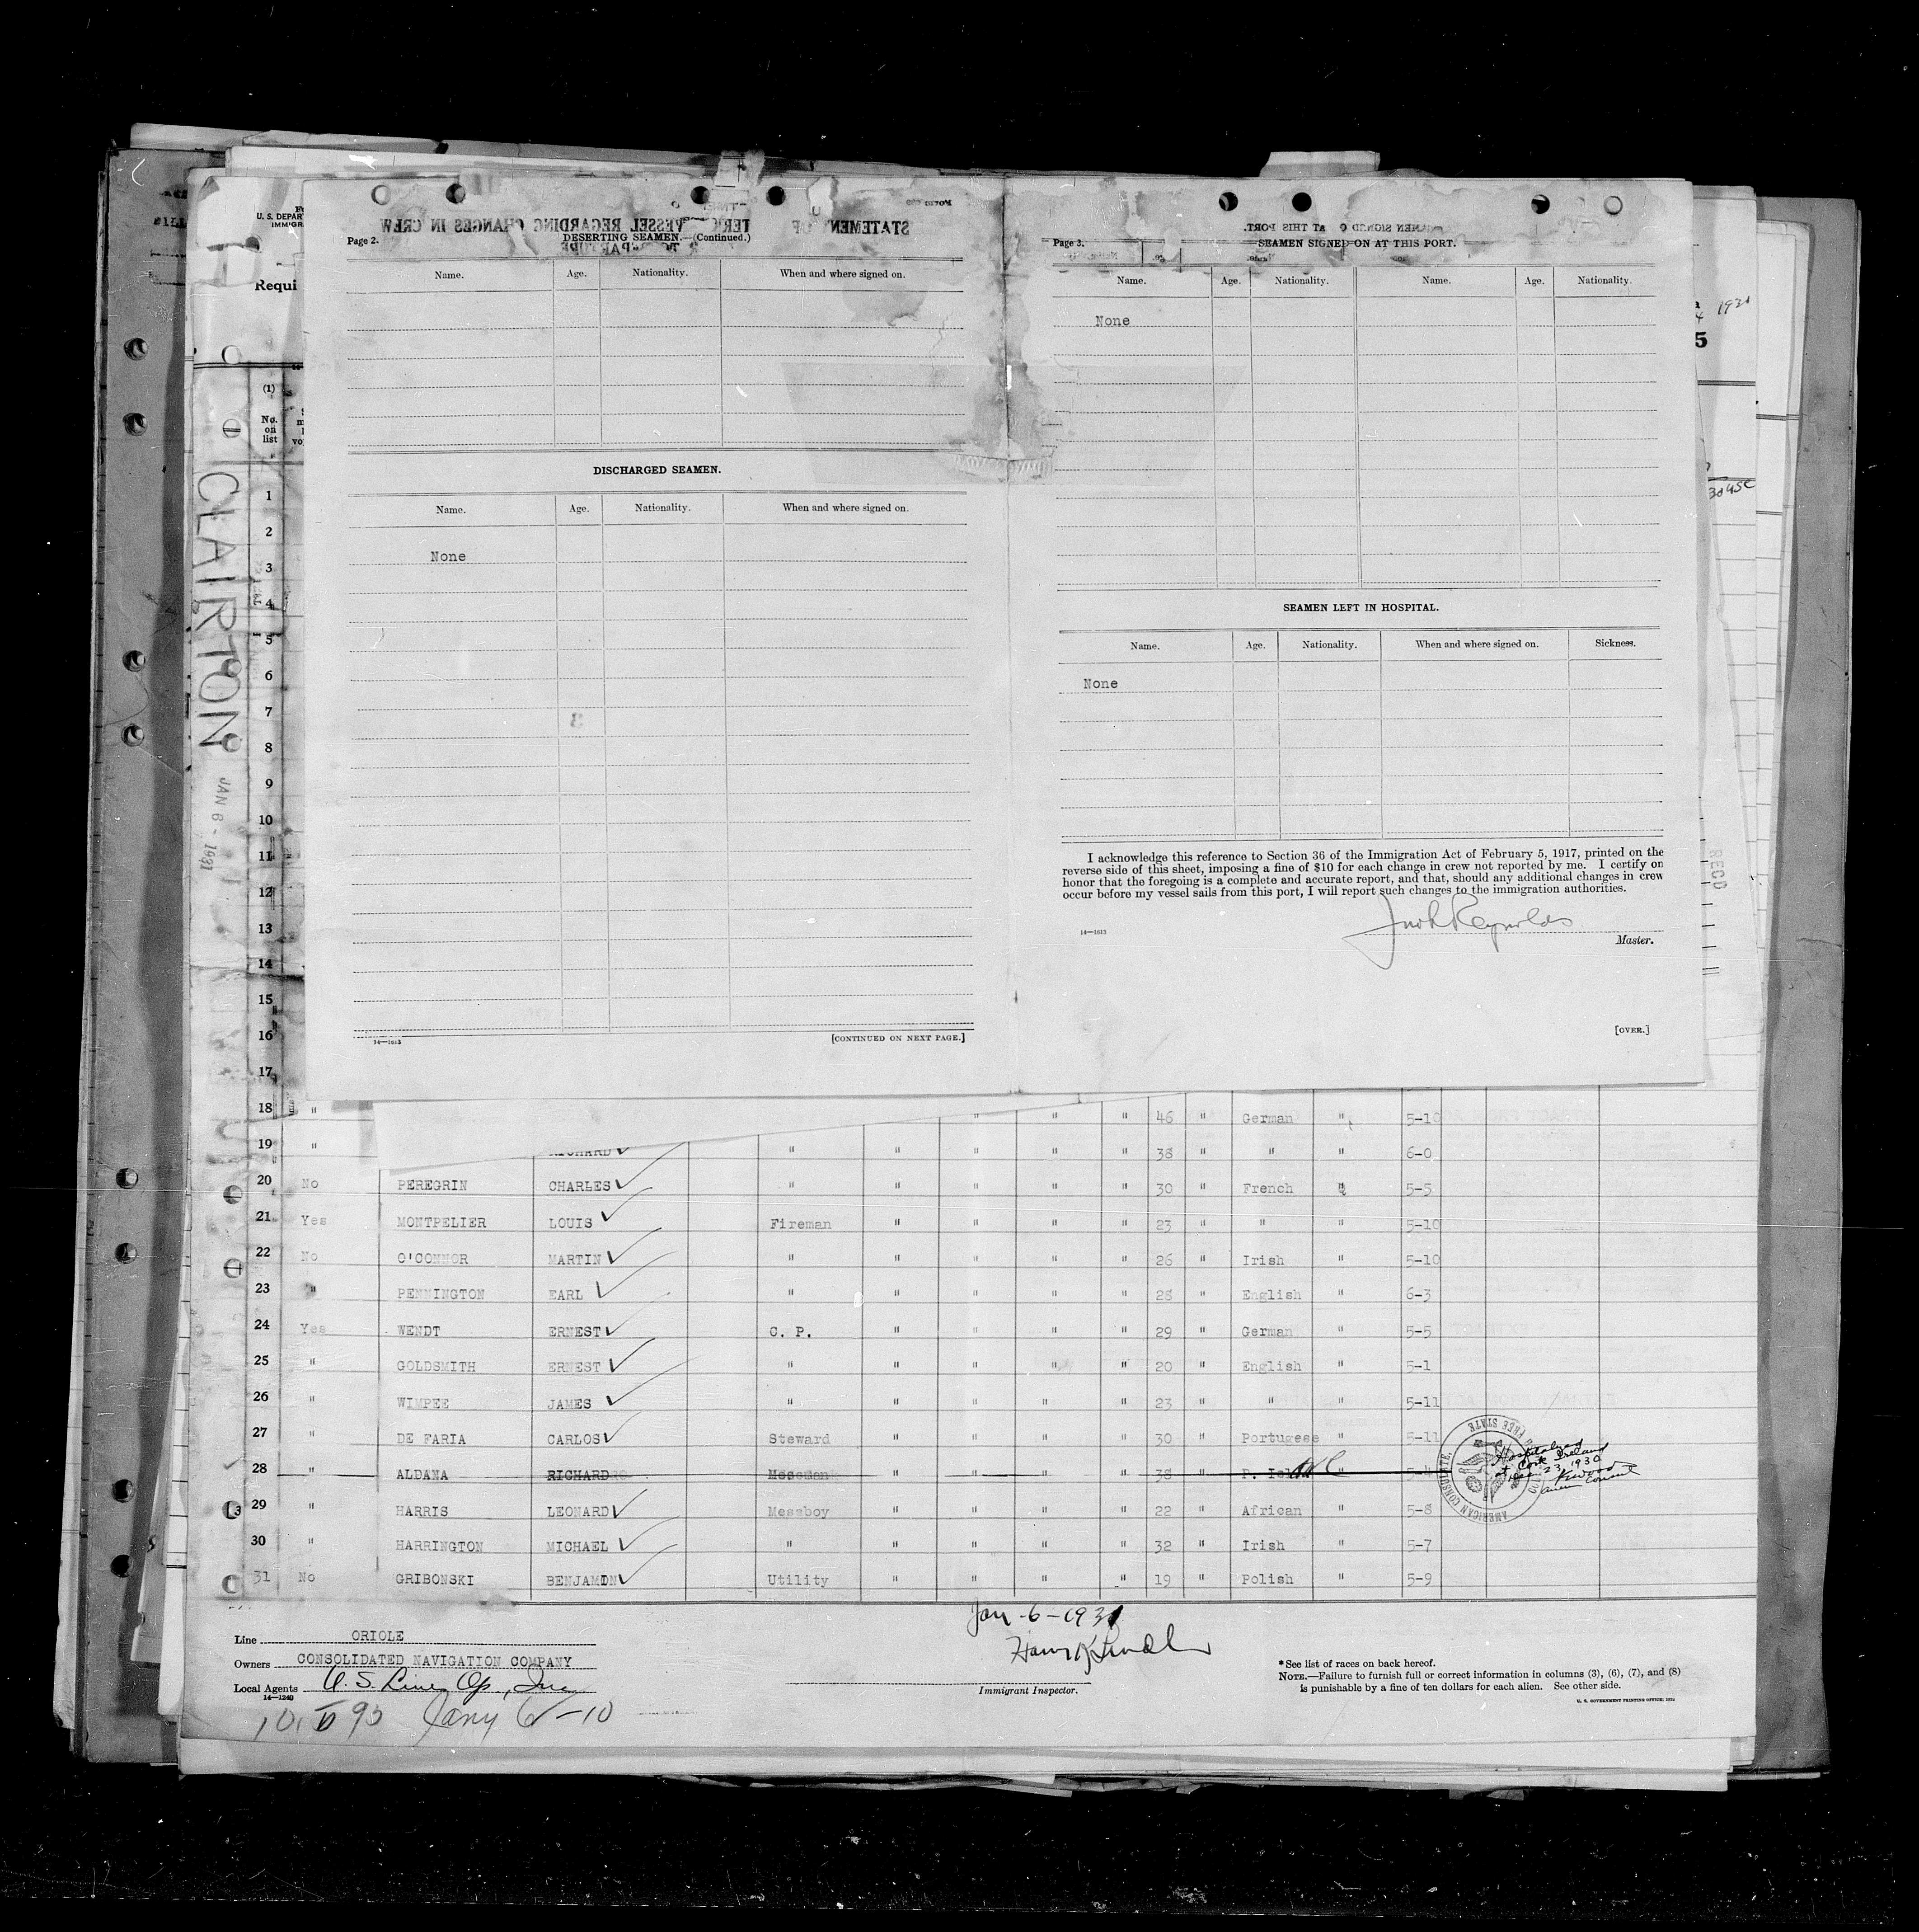 U. S. DEPAR
IMMIGR
Requi
(1)
No.
on
list
CLAIRTON
JAN 6 - 1931
Page 2.
DESERTING SEAMEN.—(Continued.)
Name. Age. Nationality. When and where signed on.
DISCHARGED SEAMEN.
Name. Age. Nationality. When and where signed on.
None
14—1613
[CONTINUED ON NEXT PAGE.]
Page 3.
SEAMEN SIGNED ON AT THIS PORT.
Name. Age. Nationality. Name. Age. Nationality.
None
SEAMEN LEFT IN HOSPITAL.
Name. Age. Nationality. When and where signed on. Sickness.
None
I acknowledge this reference to Section 36 of the Immigration Act of February 5, 1917, printed on the
reverse side of this sheet, imposing a fine of $10 for each change in crew not reported by me. I certify on
honor that the foregoing is a complete and accurate report, and that, should any additional changes in crew
occur before my vessel sails from this port, I will report such changes to the immigration authorities.
14—1613
Master.
[OVER.]
1931
5
RECD
1
2
3
4
5
6
7
8
9
10
11
12
13
14
15
16
17
18 " " " " 46 " German " 5-10
19 " RICHARD " " " " " 38 " " " 6-0
20 No PEREGRIN CHARLES " " " " " 30 " French " 5-5
21 Yes MONTPELIER LOUIS Fireman " " " " 23 " " " 5-10
22 No O'CONNOR MARTIN " " " " " 26 " Irish " 5-10
23 " PENNINGTON EARL " " " " " 28 " English " 6-3
24 Yes WENDT ERNEST C. P. " " " " 29 " German " 5-5
25 " GOLDSMITH ERNEST " " " " " 20 " English " 5-1
26 " WIMPEE JAMES " " " " " 23 " " " 5-11
27 " DE FARIA CARLOS Steward " " " " 30 " Portugese " 5-11
28 " ALDANA RICHARD Messman " " " " 38 " P. Isl 5-4
29 " HARRIS LEONARD Messboy " " " " 22 " African " 5-8
30 " HARRINGTON MICHAEL " " " " " 32 " Irish " 5-7
31 No GRIBONSKI BENJAMIN Utility " " " " 19 " Polish " 5-9
AMERICAN CONSULATE, FREE STATE
Hospitalized
at Cork Ireland
Dec. 23, 1930
Consul
Line ORIOLE
Owners CONSOLIDATED NAVIGATION COMPANY
Local Agents U. S. Lines Op., Inc
14—1240
Jany 6-10
Jan-6-1931
Immigrant Inspector.
* See list of races on back hereof.
NOTE.—Failure to furnish full or correct information in columns (3), (6), (7), and (8)
is punishable by a fine of ten dollars for each alien. See other side.
U. S. GOVERNMENT PRINTING OFFICE: 1930